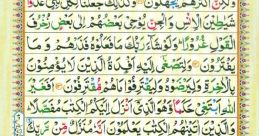 وَلٰكِنَّ اَكْثَرَهُمْ يَجْهَلُوْنَ وَكَذٰلِكَ جَعَلْنَا لِكُلِّ نَبِيٍّ
شَيٰطِيْنَ الْاِنْسِ وَالْجِنِّ يُوْحِيْ بَعْضُهُمْ اِلٰى بَعْضٍ زُخْرُفَ
الْقَوْلِ غُرُوْرًا وَلَوْ شَآءَ رَبُّكَ مَا فَعَلُوْهُ فَذَرْهُمْ وَمَا
يَفْتَرُوْنَ وَلِتَصْغٰٓى اِلَيْهِ اَفْـِٕدَةُ الَّذِيْنَ لَا يُؤْمِنُوْنَ
بِالْاٰخِرَةِ وَلِيَرْضَوْهُ وَلِيَقْتَرِفُوْا مَا هُمْ مُّقْتَرِفُوْنَ اَفَغَيْرَ
اللّٰهِ اَبْتَغِيْ حَكَمًا وَّهُوَ الَّذِيْٓ اَنْزَلَ اِلَيْكُمُ الْكِتٰبَ مُفَصَّلًا
وَالَّذِيْنَ اٰتَيْنٰهُمُ الْكِتٰبَ يَعْلَمُوْنَ اَنَّهٗ مُنَزَّلٌ مِّنْ رَّبِّكَ